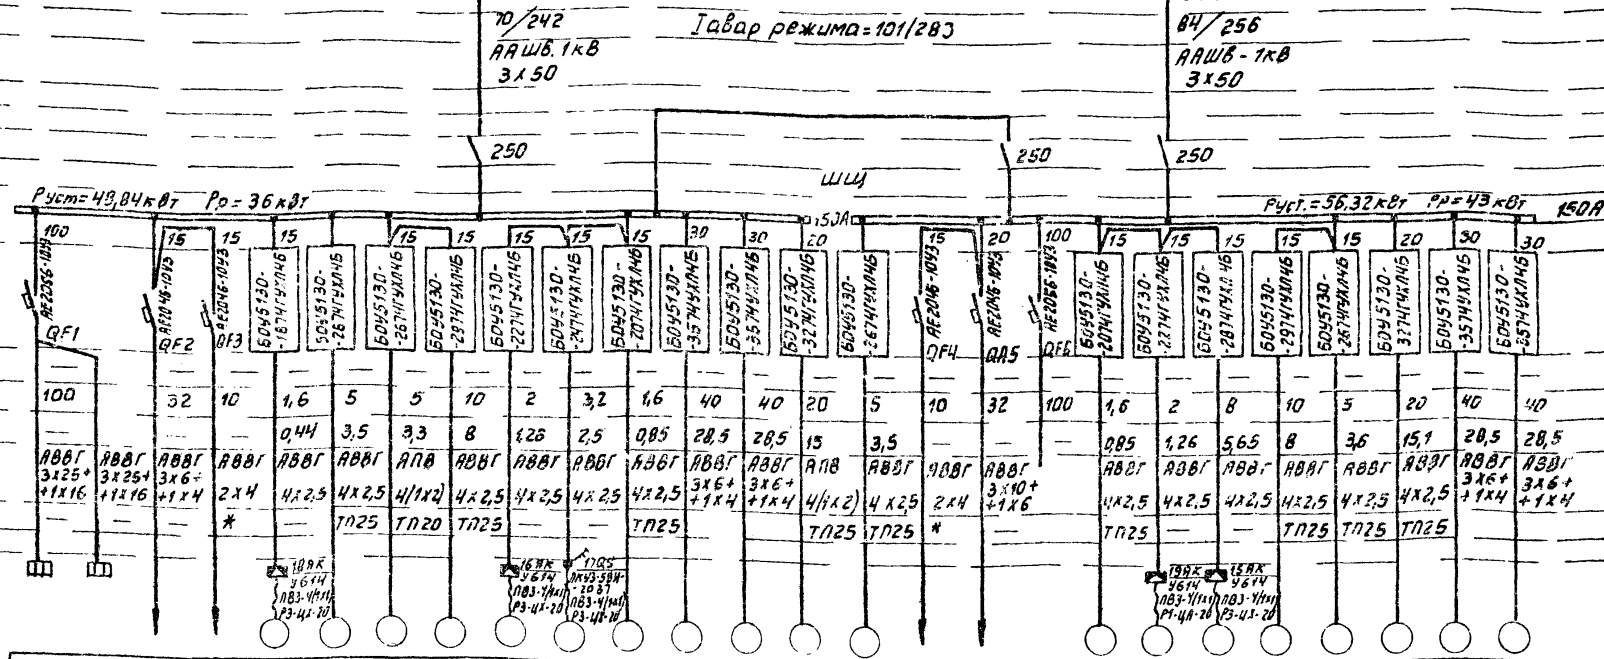 70/242
ААШВ.1кВ
3х50
Iавар режима=101/283
84/256
ААШВ-1кВ
3х50
250
250
250
ШЩ
Руст=49,84кВт Рр=36кВт
150А
Руст.=56,32кВт Рр=43кВт
150А
100 15 15 15 15 15 15 15 15 30 30 20 15 20 100 15 15 15 15 15 20 30 30
QF1
АЕ2046-10У3
QF2
АЕ2046-10У3
QF3
БОУ5130-
-1874ГУХЛ4Б
БОУ5130-
-2674ГУХЛ4Б
БОУ5130-
-2674ГУХЛ4Б
БОУ5130-
-2974ГУХЛ4Б
БОУ5130-
-2274ГУХЛ4Б
БОУ5130-
-2474ГУХЛ4Б
БОУ5130-
-2074ГУХЛ4Б
БОУ5130-
-3574УХЛ4Б
БОУ5130-
-3574УХЛ4Б
БОУ5130-
-3274ГУХЛ4Б
БОУ5130-
-2674ГУХЛ4Б
АЕ2046-10У3
QF4
АЕ2046-10У3
АЕ2056-10У3
QF6
БОУ5130-
-2074ГУХЛ4Б
БОУ5130-
-2274ГУХЛ4Б
БОУ5130-
-2874ГУХЛ4Б
БОУ5130-
-2974ГУХЛ4Б
БОУ5130-
-2674ГУХЛ4Б
БОУ5130-
-3274ГУХЛ4Б
БОУ5130-
-3574УХЛ4Б
БОУ5130-
-3574УХЛ4Б
100 32 10 1,6 5 5 10 2 3,2 1,6 40 40 20 5 10 32 100 1,6 2 8 10 5 20 40 40
0,44 3,5 3,3 8 1,26 2,5 0,85 28,5 28,5 15 3,5 0,85 1,26 5,65 8 3,6 15,1 28,5 28,5
АВВГ АВВГ АВВГ АВВГ АВВГ АВВГ АПВ АВВГ АВВГ АВВГ АВВГ АВВГ АВВГ АПВ АВВГ АВВГ АВВГ АВВГ АВВГ АВВГ АВВГ АВВГ АВВГ АВВГ АВВГ
3х25+ 3х25+ 3х6+ 3х6+ 3х6+ 3х10+ 3х6+ 3х6+
+1х16 +1х16 +1х4 2х4 4х2,5 4х2,5 4/1х2) 4х2,5 4х2,5 4х2,5 4х2,5 +1х4 +1х4 4/1х2) 4х2,5 2х4 +1х6 4х2,5 4х2,5 4х2,5 4х2,5 4х2,5 4х2,5 +1х4 +1х4
* — ТП25 ТП20 ТП25 — — ТП25 ТП25 ТП25 * ТП25 — — ТП25 ТП25 ТП25
У614
ПВ3-4/1х1)
Р3-ЦХ-20
16ЯК
У614
ПВ3-4/1х1)
Р3-ЦХ-20
17QS
ПВ3-4/1х1)
Р3-ЦХ-20
19ЯК
У614
ПВ3-4/1х1)
15ЯК
У614
ПВ3-4/1х1)
Р3-ЦХ-20